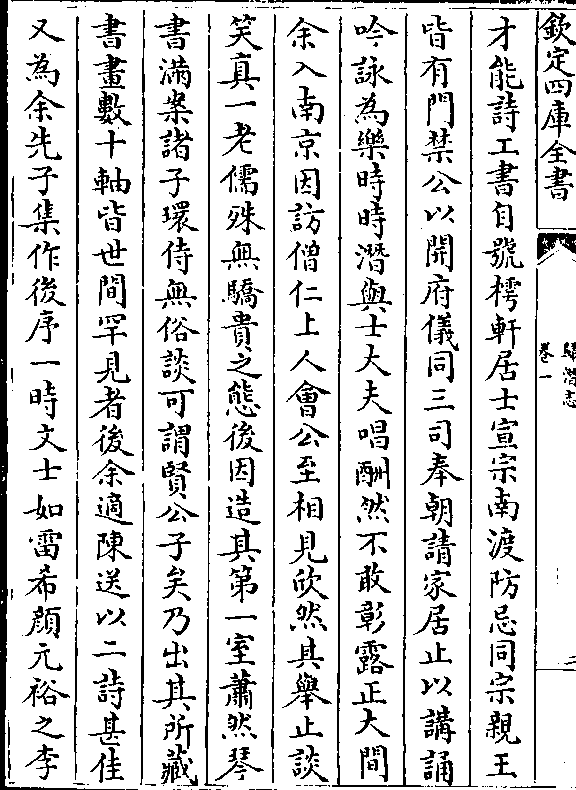 欽定四庫全書
歸潛志
卷一
二
才能詩工書自號樗軒居士宣宗南渡防忌同宗親王
皆有門禁公以開府儀同三司奉朝請家居止以講誦
吟詠為樂時時潛與士大夫唱酬然不敢彰露正大間
余入南京因訪僧仁上人會公至相見欣然其舉止談
笑真一老儒殊無驕貴之態後因造其第一室蕭然琴
書滿案諸子環侍無俗談可謂賢公子矣乃出其所藏
書畫數十軸皆世間罕見者後余適陳送以二詩甚佳
又為余先子集作後序一時文士如雷希顔元裕之李